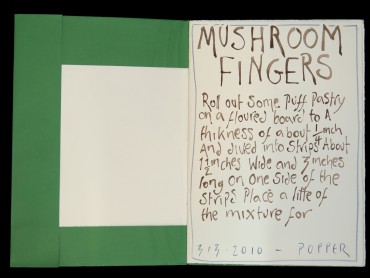 MUSHROOM
FINGERS
Roll out some puff pastry
on a floured board to A
thikness of about 1/4 inch
And dived into strips About
1 1/2 inches wide and 3 inches
long on one side of the
strips Place a litte of
the mixture for
3·13·2010 - POPPER